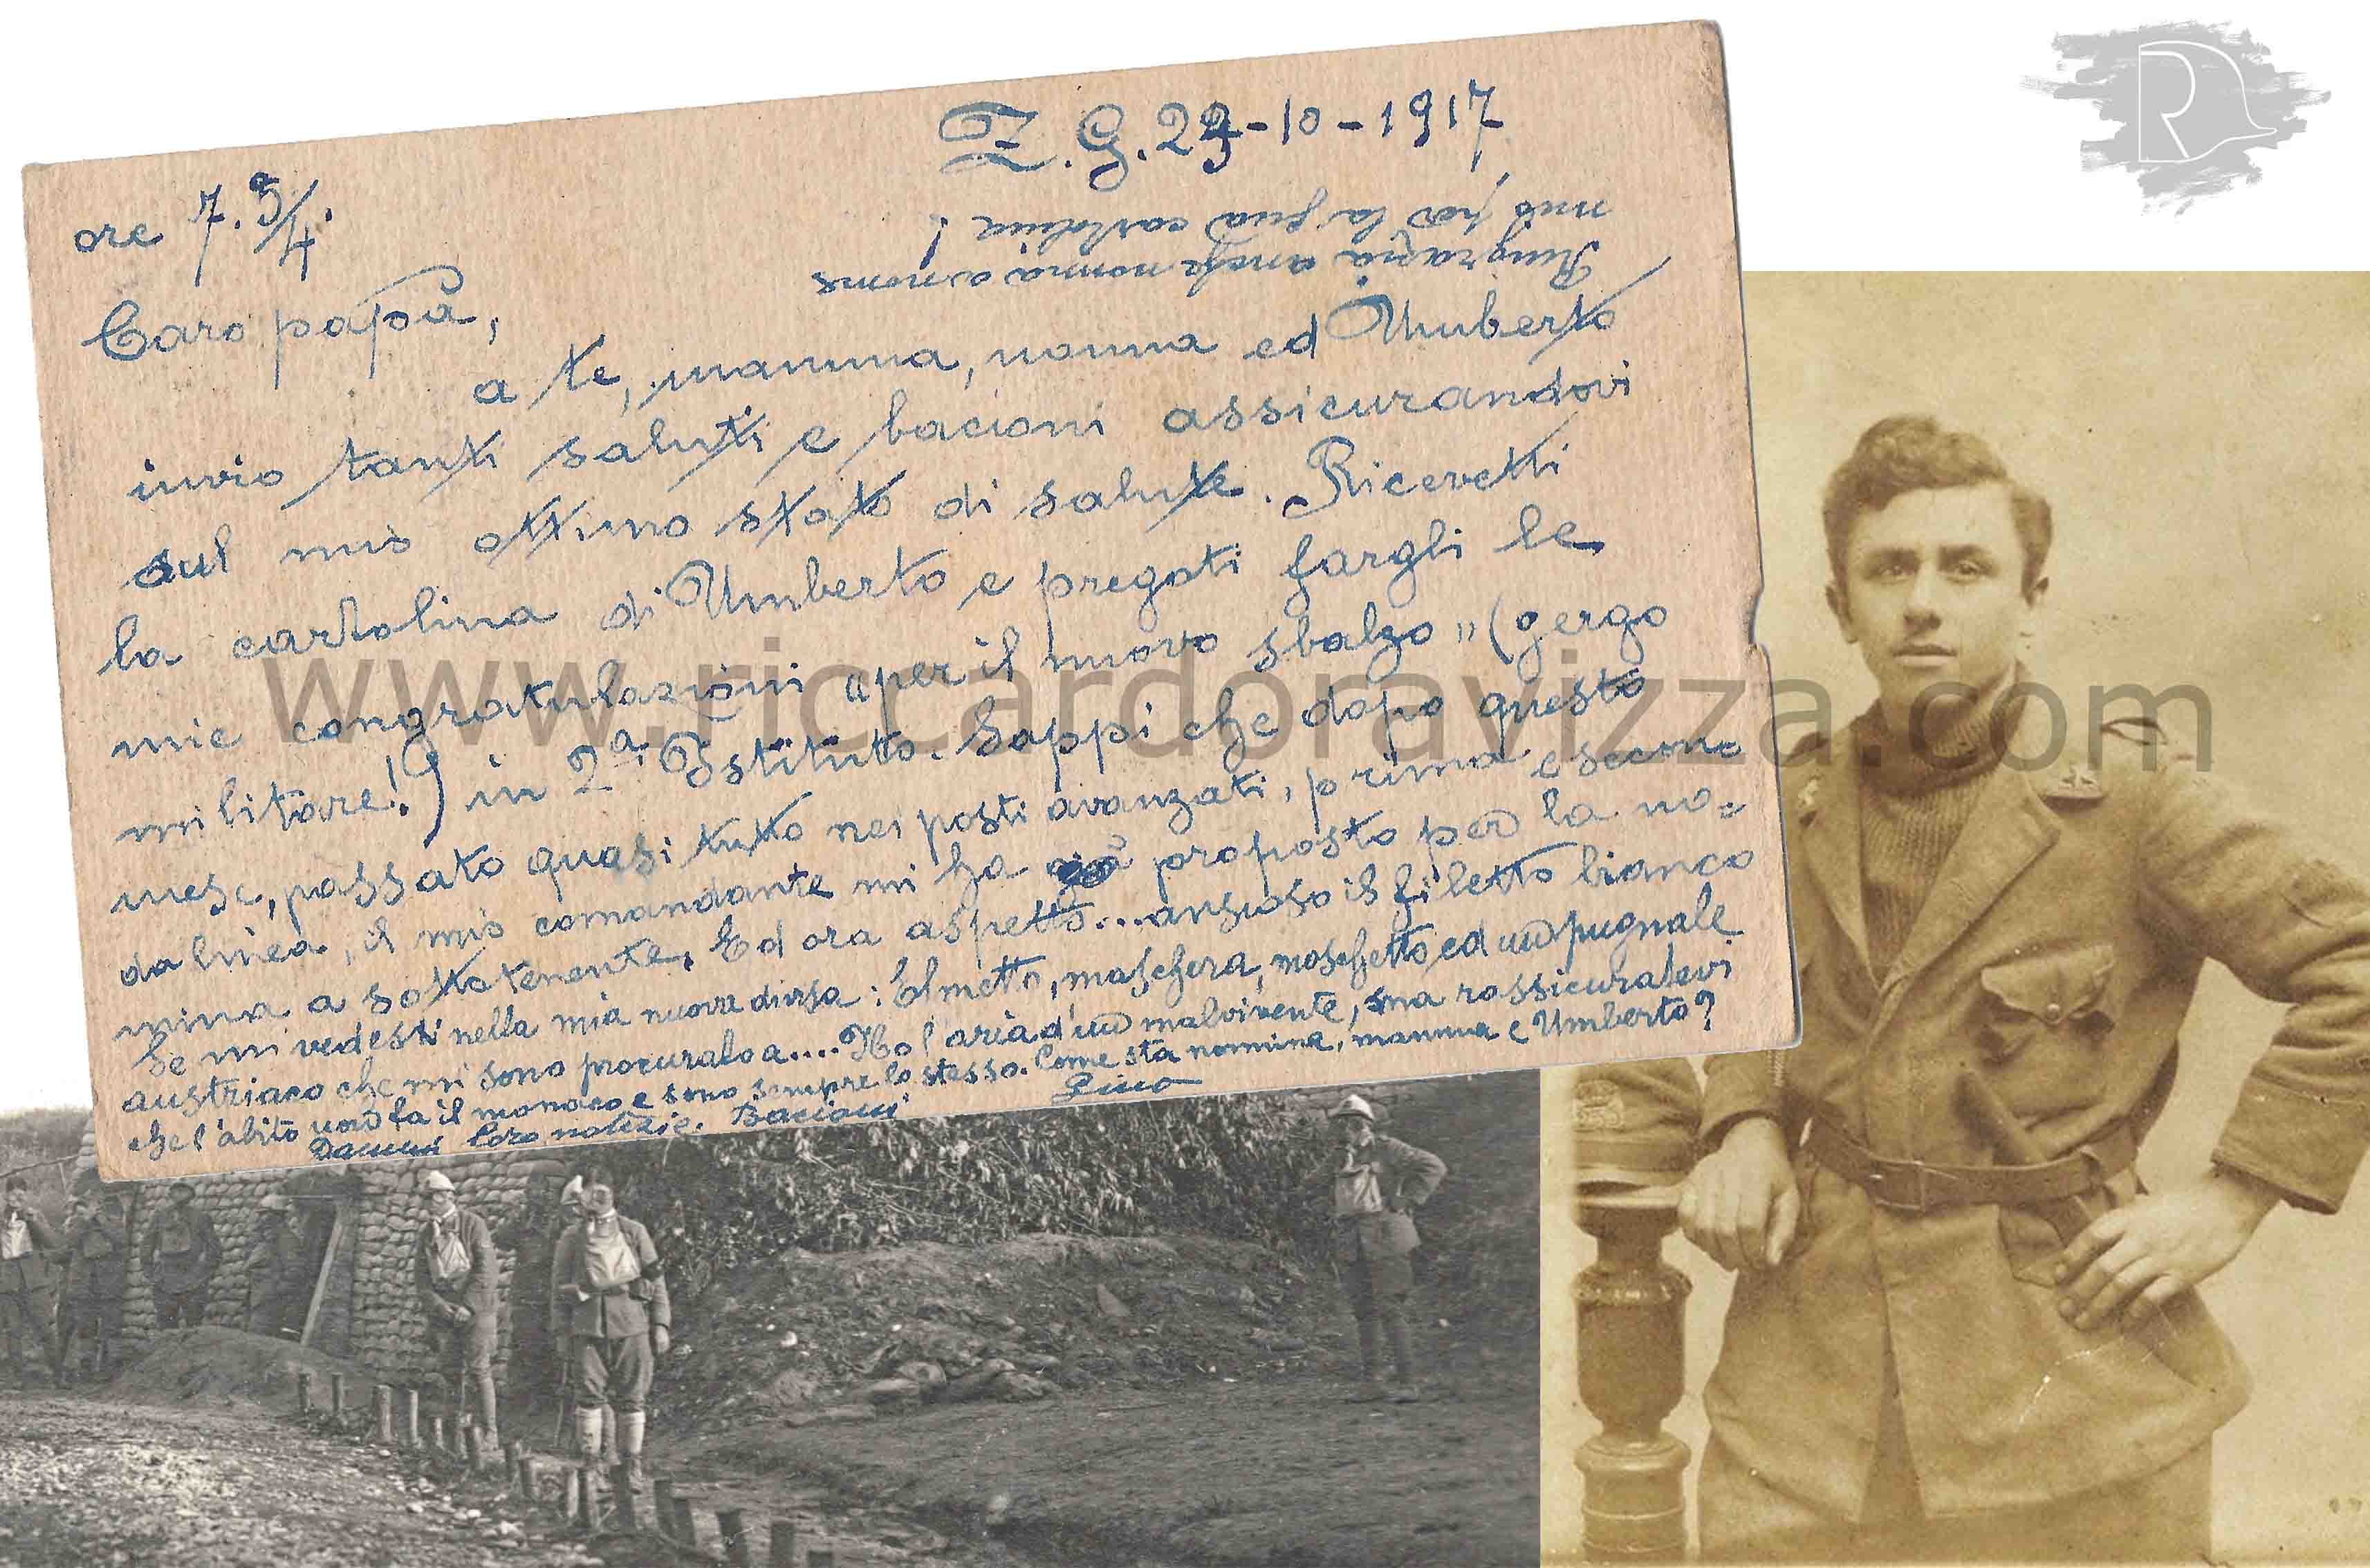 Z. G. 23-10-1917
ore 7. 3/4.
Ringrazia anche nonna a nome
mio per la sua cartolina!
Caro papà,
a te, mamma, nonna ed Umberto
invio tanti saluti e bacioni assicurandovi
sul mio ottimo stato di salute. Ricevetti
la cartolina di Umberto e pregoti fargli le
mie congratulazioni "per il nuovo sbalzo" (gergo
militare!?) in 2ª Istituto. Sappi che dopo questo
mese, passato quasi tutto nei posti avanzati, prima e secon=
da linea, il mio comandante mi ha già proposto per la no=
mina a sottotenente. Ed ora aspetto... ansioso il filetto bianco
Se mi vedesti nella mia nuova divisa: Elmetto, maschera, moschetto ed un pugnale
austriaco che mi sono procurato a.... Ho l'aria d'un malvivente, ma rassicuratevi
che l'abito non fa il monaco e sono sempre lo stesso. Come sta nonnina, mamma e Umberto?
Dammi loro notizie. Bacioni
Pino
www.riccardoravizza.com
R